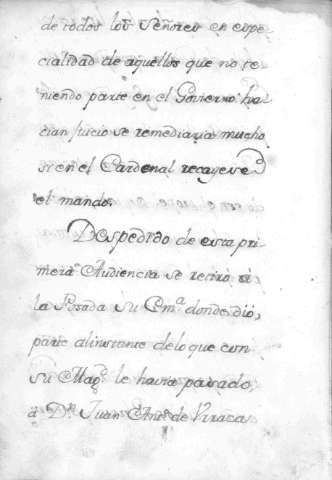 de todos los Señores en espe
cialidad de aquellos que no te
niendo parte en el Govierno ha
cian juicio se remediaria mucho
si en el Cardenal recayese
el mando.
Despedido de esta pri
mera Audiencia se retiró a
la Posada su Em.ª donde dió,
parte al instante de lo que con
su Mag.d le havia pasado,
a D.n Juan Ant.º de Viraca